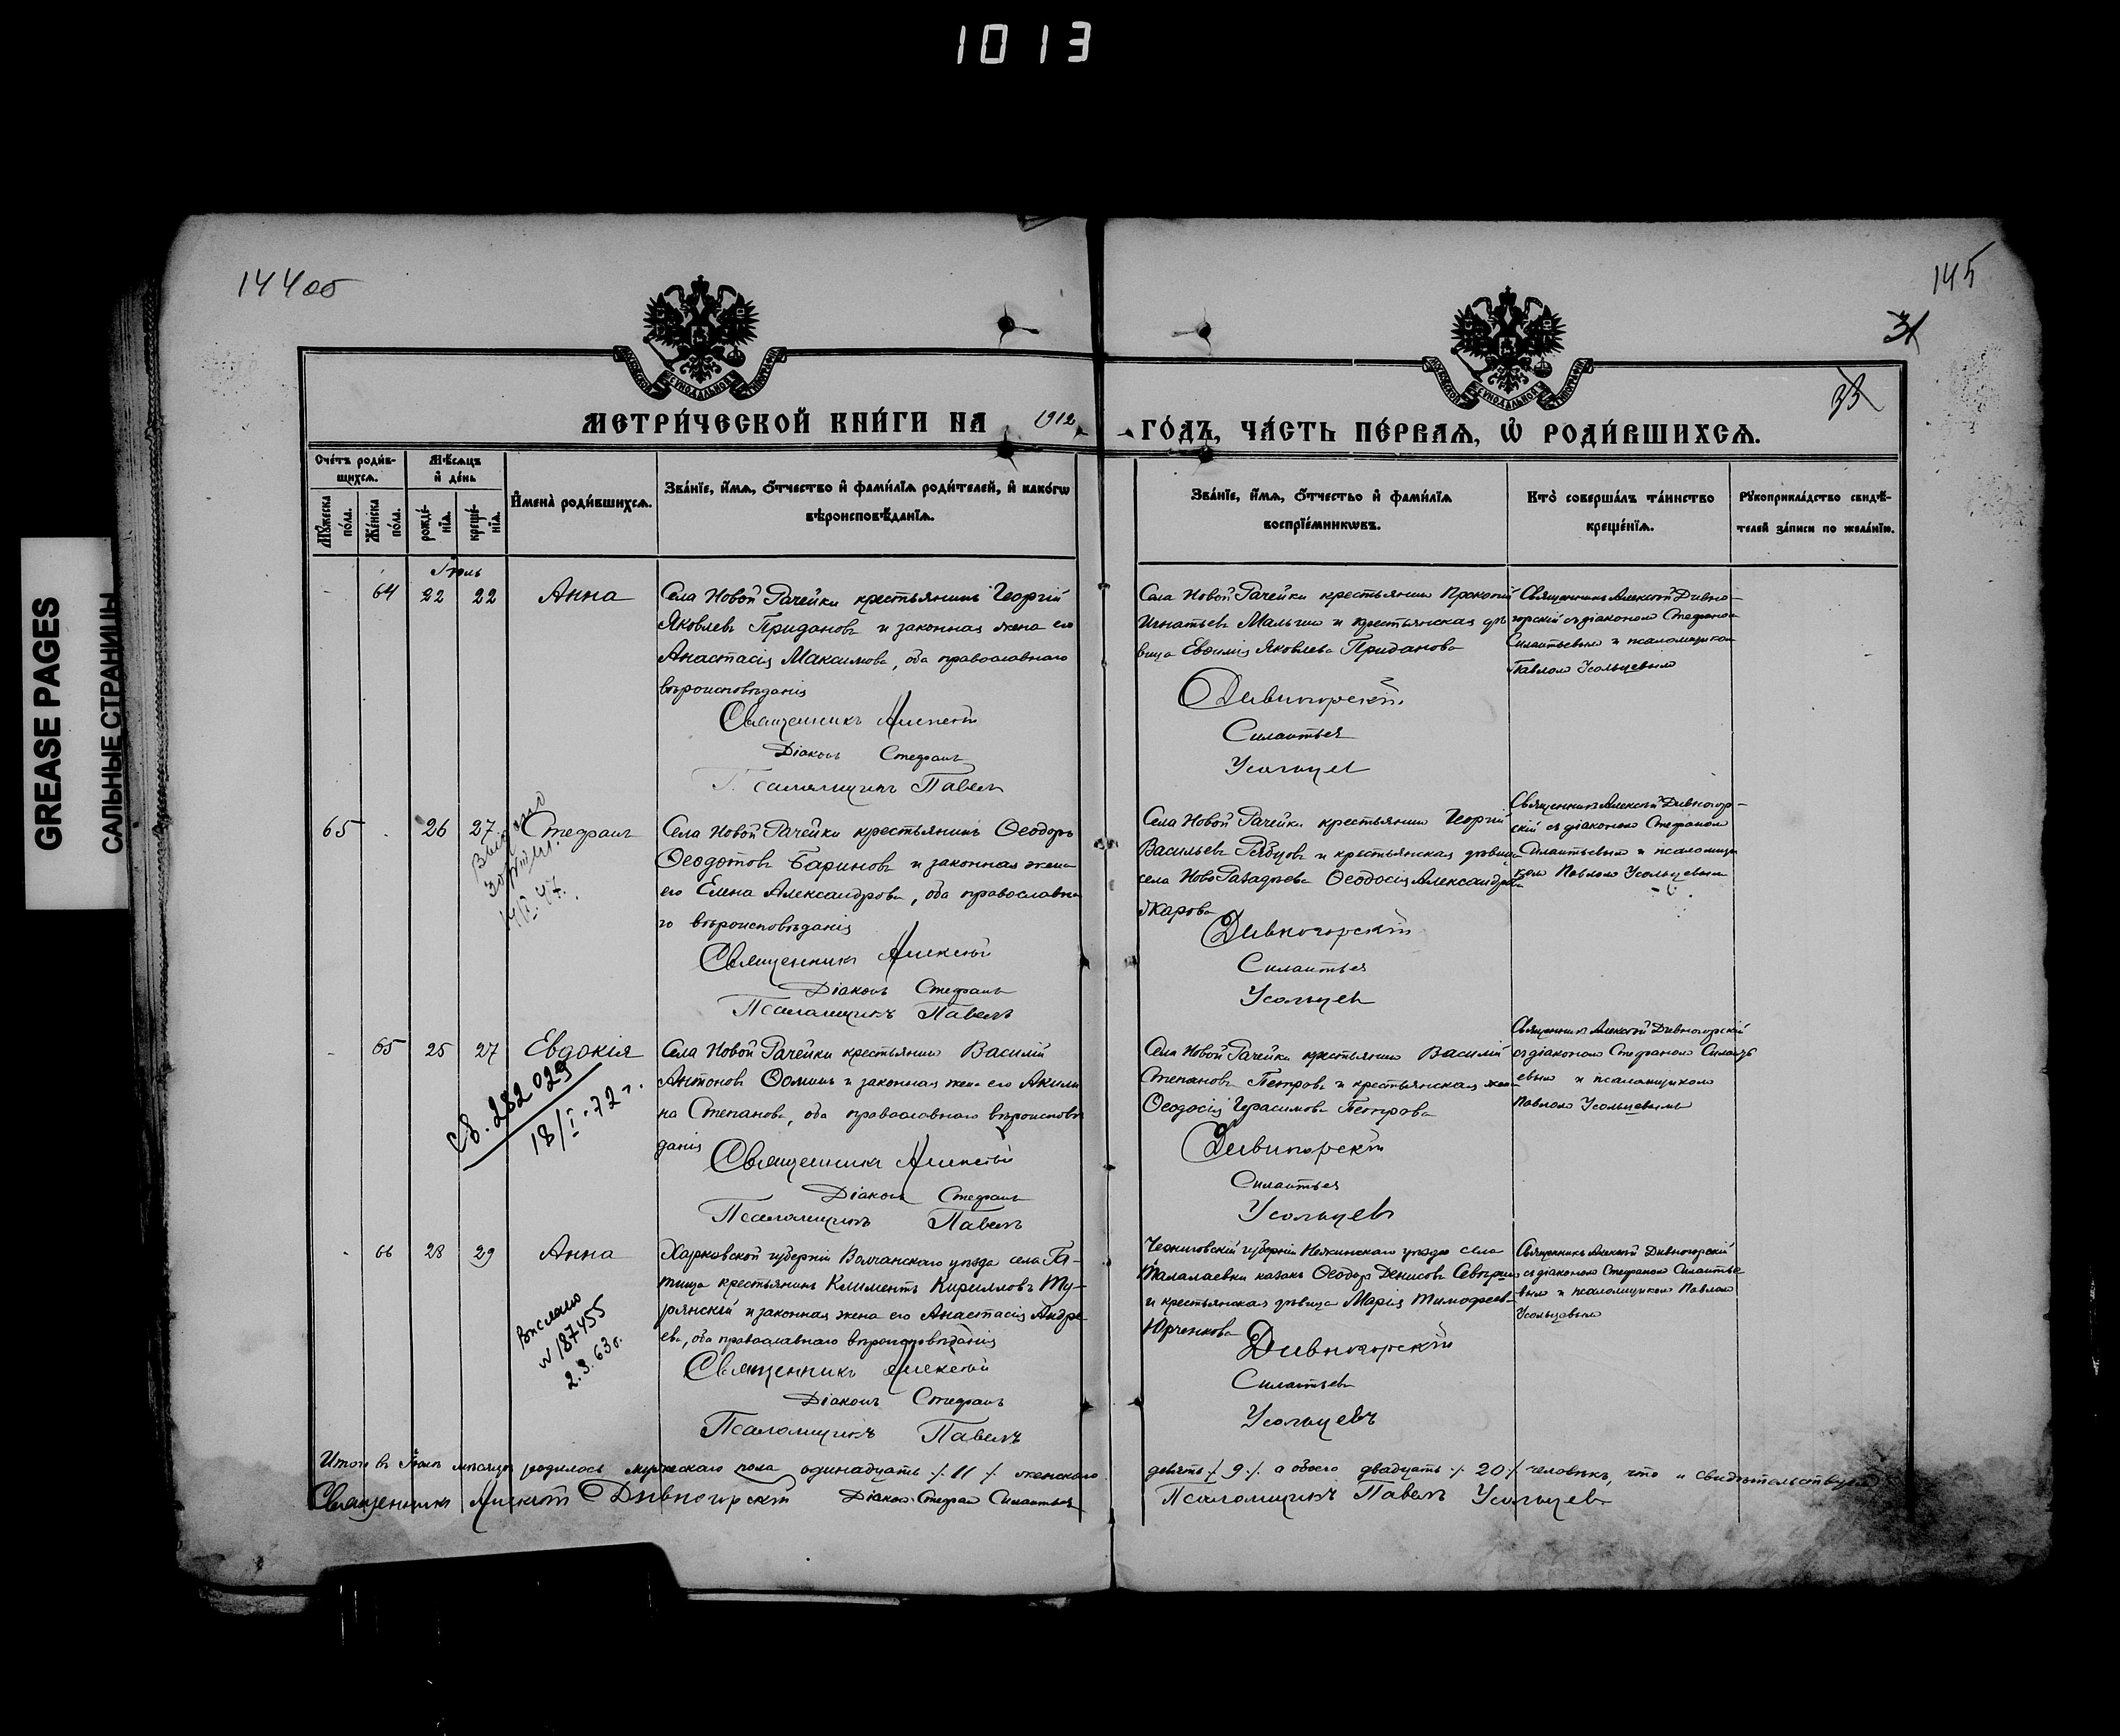 1013
GREASE PAGES
САЛЬНЫЕ СТРАНИЦЫ
144об
145
31
33
МЕТРИ́ЧЕСКОЙ КНИ́ГИ НА 1912 ГО́ДЪ, ЧА́СТЬ ПЕ́РВАѦ, Ѡ҆ РОДИ́ВШИХСѦ.
Сче́тъ роди́в-
шихсѧ.
Мѣ́сѧцъ
и҆ де́нь
Мꙋ́жеска по́ла.
Же́нска по́ла.
рожде́-
нїѧ.
креще́-
нїѧ.
И҆мена̀ роди́вшихсѧ.
Зва́нїе, и҆́мѧ, ѻ҆́тчество и҆ фами́лїѧ роди́телей, и҆ како́гѡ
вѣроисповѣ́данїѧ.
Зва́нїе, и҆́мѧ, ѻ҆́тчество и҆ фами́лїѧ
воспрїе́мникѡвъ.
Кто̀ соверша́лъ та́инство
креще́нїѧ.
Рꙋкоприкла́дство свидѣ́-
телей за́писи по жела́нїю.
Іюль
- 64 22 22 Анна
Села Новой Рачейки крестьянинъ Георгій
Яковлевъ Придановъ и законная жена его
Анастасія Максимова, оба православнаго
вѣроисповѣданія
Священникъ Алексѣй
Діаконъ Стефанъ
Псаломщикъ Павелъ
Села Новой Рачейки крестьянинъ Прокопій
Игнатьевъ и крестьянская дѣ-
вица Евѳимія Яковлева Приданова
Дивногорскій
Силантьев
Усольцев
Священникъ Алексѣй Дивно-
горскій съ діакономъ Стефаномъ
Силантьевымъ и псаломщикомъ
Павломъ Усольцевымъ
65 . 26 27 Стефанъ
Села Новой Рачейки крестьянинъ Ѳеодоръ
Ѳеодотовъ Бариновъ и законная жена
его Елена Александрова, оба православна
го вѣроисповѣданія
Священникъ Алексѣй
Діаконъ Стефанъ
Псаломщикъ Павелъ
Села Новой Рачейки крестьянинъ Георгій
Васильевъ Рябцовъ и крестьянская дѣвица
села Ѳеодосія Александрова
Дивногорскій
Силантьев
Усольцев
Священникъ Алексѣй Дивногор-
скій съ діакономъ Стефаномъ
Силантьевымъ и псаломщи
комъ Павломъ Усольцевымъ
- 65 25 27 Евдокія
св. 282029
18/I-72г.
Села Новой Рачейки крестьянинъ Василій
Антоновъ Ѳоминъ и законная жена его Акили
на Степанова, оба православнаго вѣроисповѣ
данія
Священникъ Алексѣй
Діаконъ Стефанъ
Псаломщикъ Павелъ
Села Новой Рачейки крестьянинъ Василій
Степановъ Петровъ и крестьянская жена
Ѳеодосія Герасимова Петрова
Дивногорскій
Силантьев
Усольцевъ
Священникъ Алексѣй Дивногорскій
съ діакономъ Стефаномъ Силанть
евымъ и псаломщикомъ
Павломъ Усольцевымъ
- 66 28 29 Анна
Выслано
N 187455
2.3.63г.
Харьковской губерніи Волчанскаго уѣзда села Га-
тища крестьянинъ Климентъ Кирилловъ Ту-
рянскій и законная жена его Анастасія Андре
ева, оба православнаго вѣроисповѣданія
Священникъ Алексѣй
Діаконъ Стефанъ
Псаломщикъ Павелъ
Черниговской губерніи Нѣжинскаго уѣзда села
Талалаевки казакъ Ѳеодоръ Денисовъ
и крестьянская дѣвица Марія Тимофеев-
Юрченкова
Дивногорскій
Силантьевъ
Усольцевъ
Священникъ Алексѣй Дивногорскій
съ діакономъ Стефаномъ Силантье
вымъ и псаломщикомъ Павломъ
Усольцевымъ
Итого въ Іюлѣ мѣсяцѣ родилось мужескаго пола одинадцать ./. 11 ./. женскаго девять ./. 9 ./. а обоего двадцать ./. 20 ./. человѣкъ, что и свидѣтельствуемъ
Священникъ Алексѣй Дивногорскій Діаконъ Стефанъ Силантьев Псаломщикъ Павелъ Усольцевъ